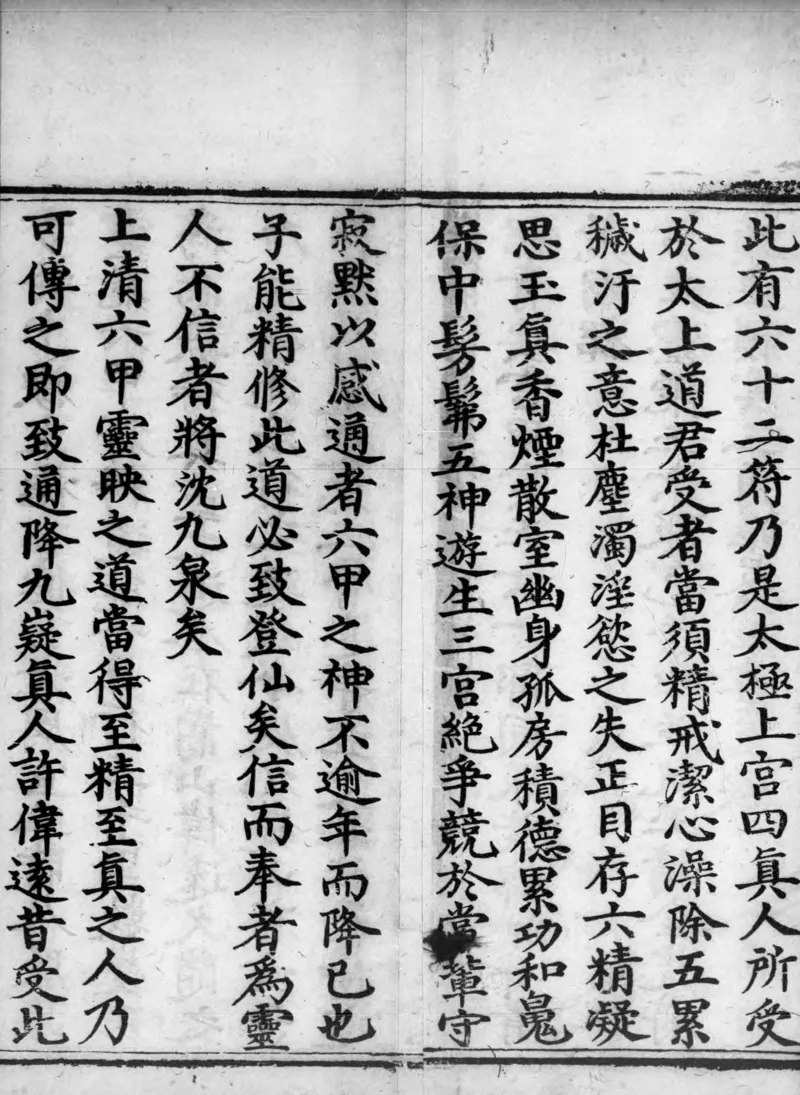 此有六十二符乃是太極上宮四眞人所受
於太上道君受者當須精戒潔心澡除五累
穢汙之意杜塵濁淫慾之失正目存六精凝
思玉眞香煙散室幽身孤房積德累功和䰟
保中髣髴五神遊生三宮絶爭競於當軰守
寂黙以感通者六甲之神不逾年而降已也
子能精修此道必致登仙矣信而奉者爲靈
人不信者將沈九泉矣
上清六甲靈映之道當得至精至眞之人乃
可傳之即致通降九嶷眞人許偉遠昔受此